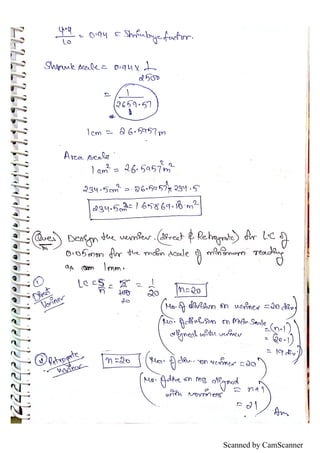 9.4/10 = 0.94 = Shrinkage factor.
Shrunk scale = 0.94 × 1/2500
= 1/2659.57
1cm = 26.5957m
Area scale
1cm² = 26.5957²m²
234.5m² = 26.5957² × 234.5
234.5m² = 165869.18 m²
Ques Design the vernier (direct & Retrograte) for LC of
0.05mm for the main scale of minimum reading
as 1mm.
① Direct Vernier
LC = S/n = 5/100 = 1/20 n=20
20
No. of division on vernier = 20 div
No. of division on Main Scale
aligned with vernier = (n-1)
= (20-1)
= 19
② Retrograte Vernier n=20
No. of div. on vernier = 20
No. of div on ms aligned
with vernier = n+1
= 21
Ans
Scanned by CamScanner